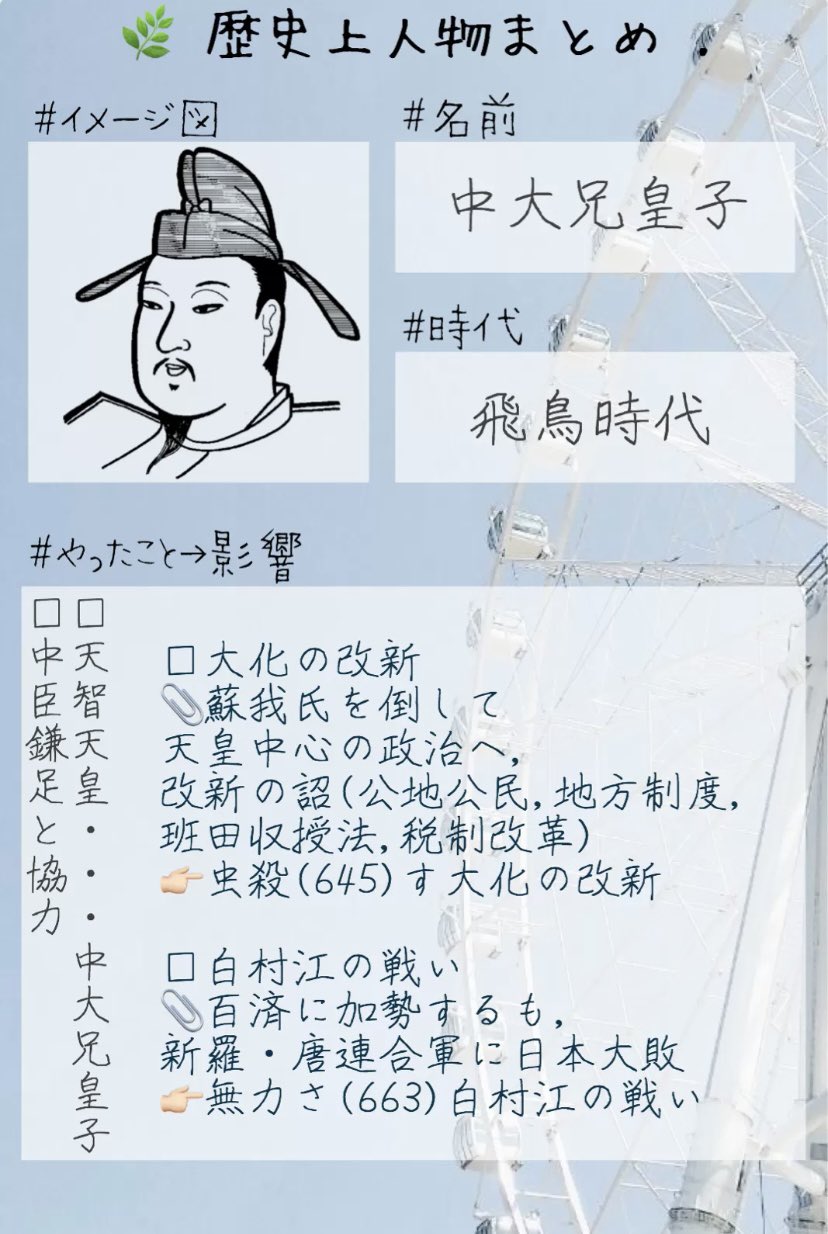 🌿 歴史上人物まとめ .
#イメージ図
#名前
中大兄皇子
#時代
飛鳥時代
#やったこと→影響
□天智天皇・・・中大兄皇子
□中臣鎌足と協力
□大化の改新
📎蘇我氏を倒して
天皇中心の政治へ,
改新の詔(公地公民,地方制度,
班田収授法,税制改革)
👉🏻虫殺(645)す大化の改新
□白村江の戦い
📎百済に加勢するも,
新羅・唐連合軍に日本大敗
👉🏻無力さ(663)白村江の戦い